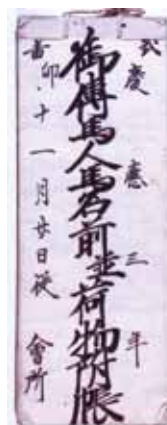 慶應三年
御傳馬人馬名前並荷物附帳
卯十一月廿日従 會所